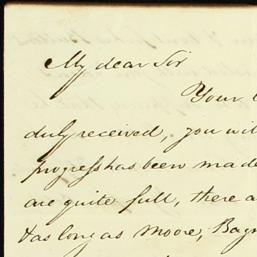 My dear Sir
Your
duly received, you wil
progress has been made
are quite full, there a
as long as Moore, Bag